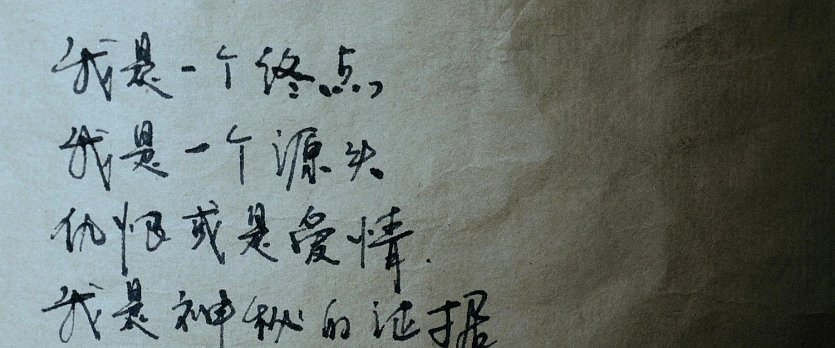 我是一个终点，
我是一个源头
仇恨或是爱情.
我是神秘的证据